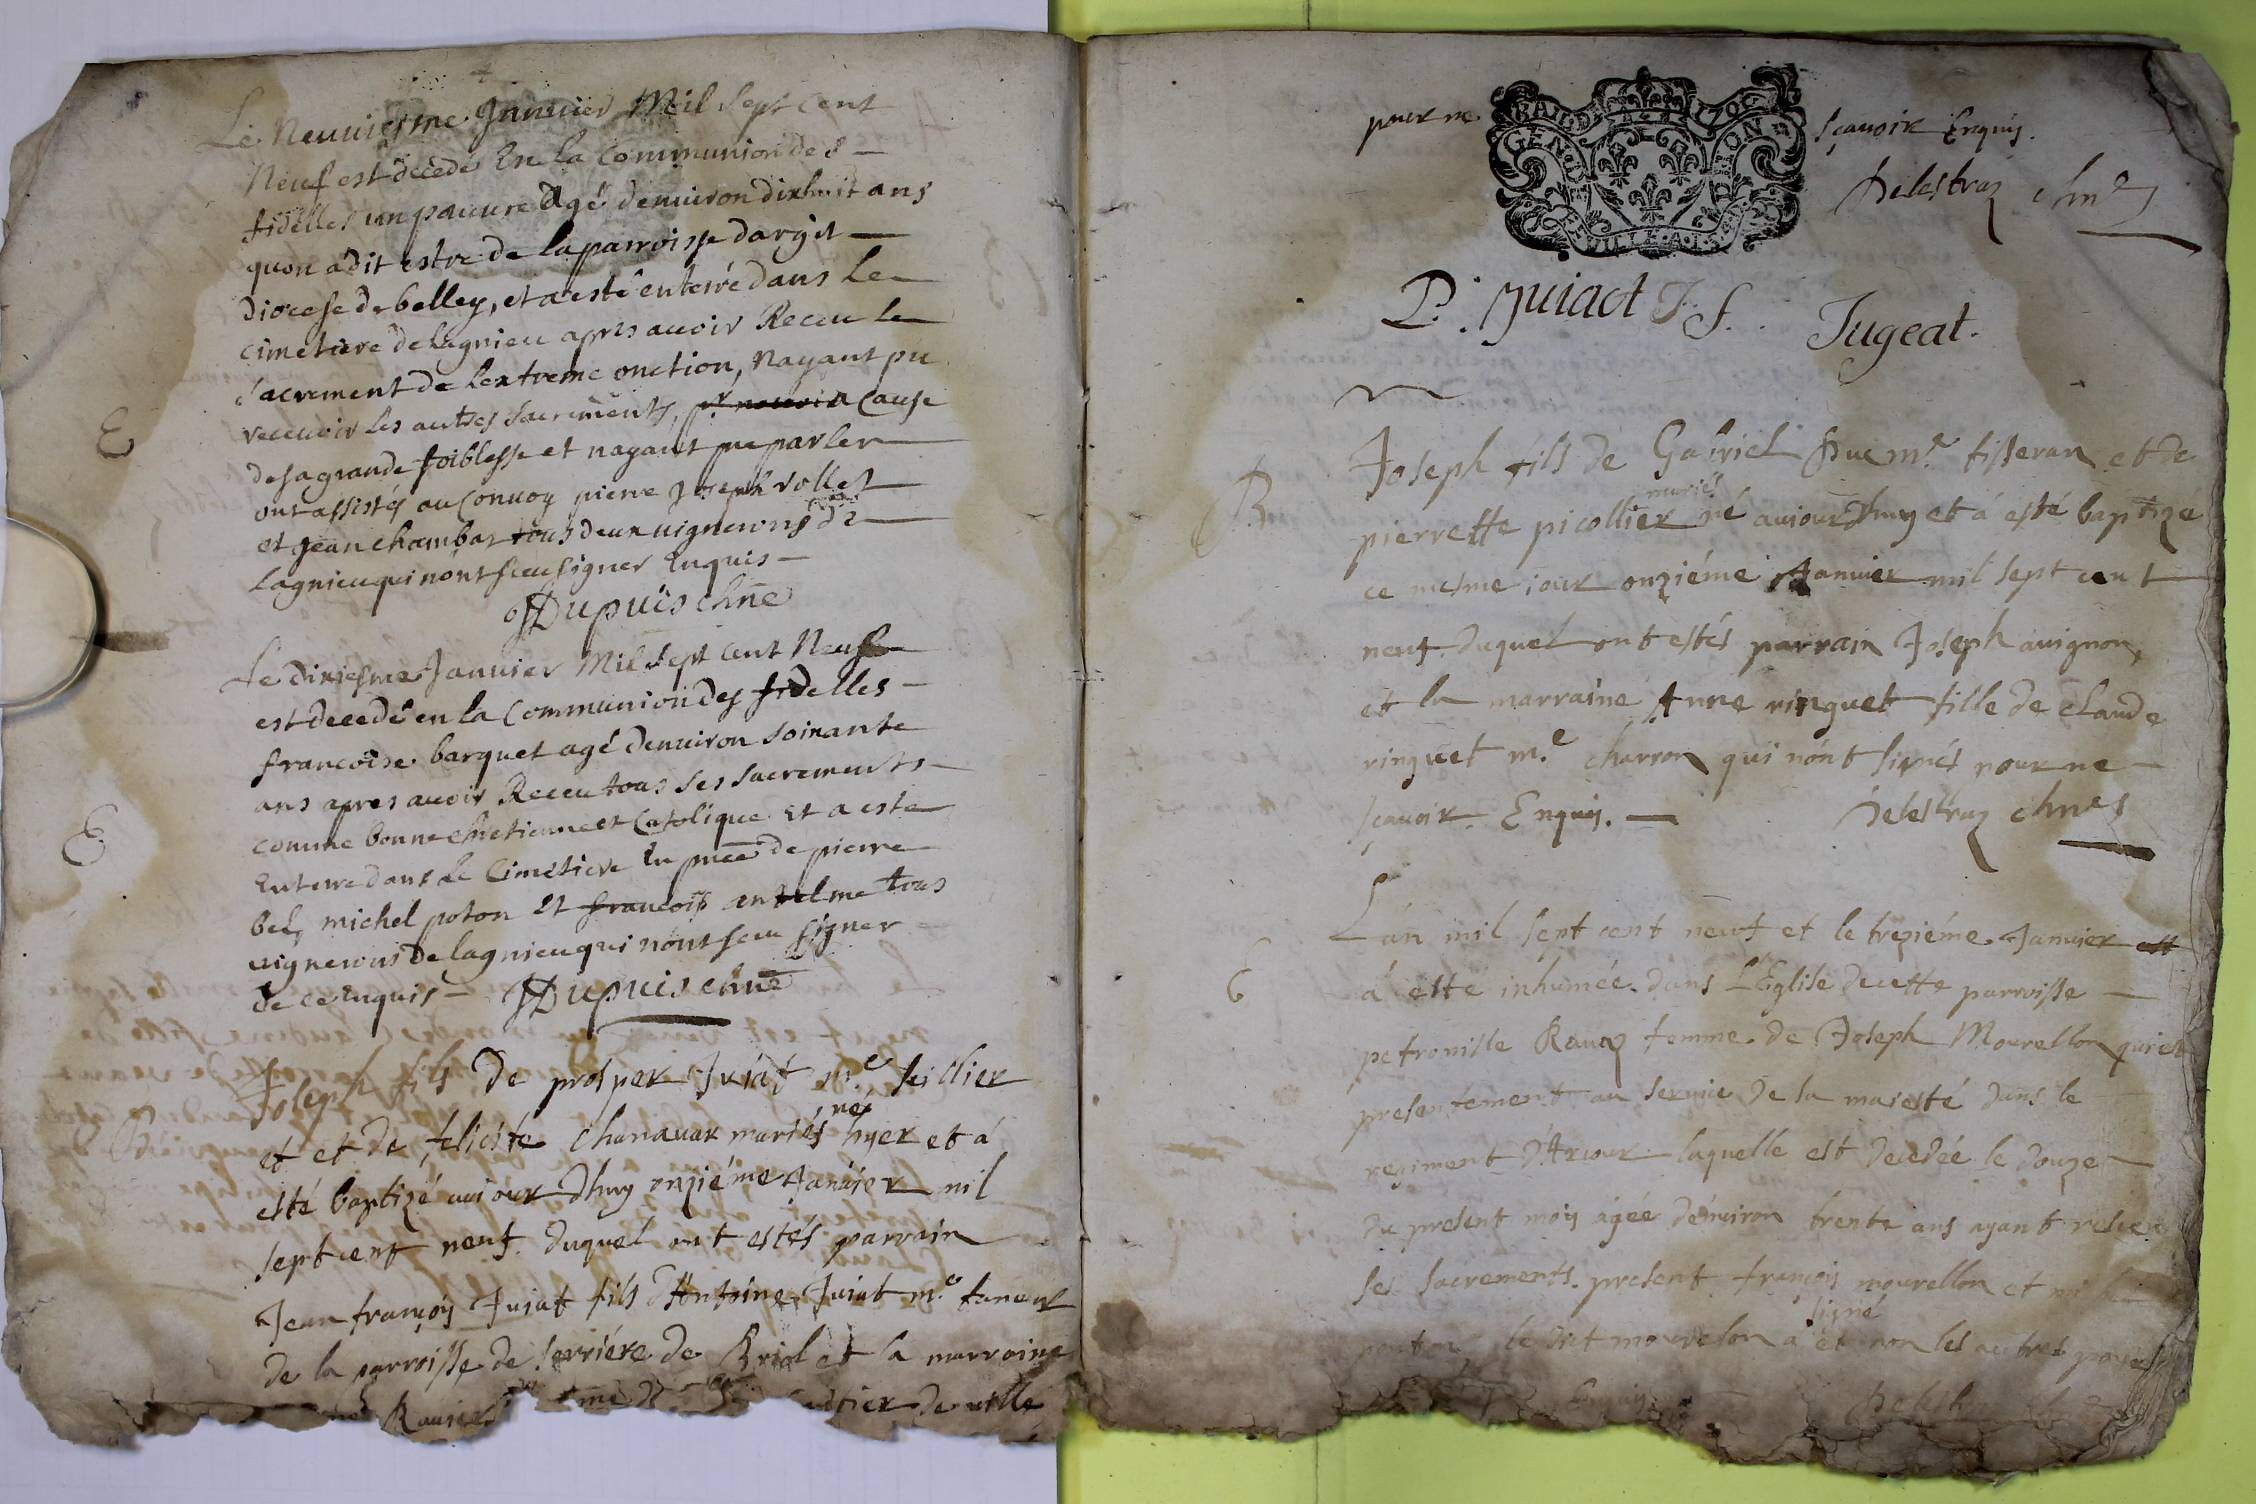 Le Neuuiesme Januier Mil sept cent
Neuf est decedé En la Communion des
fidelles un pauure Agé denuiron dixhuit ans
quon a dit estre de la parroisse dargit
diocese de belley, et a esté enterré dans le
cimetiere de lagnieu apres auoir Receu le
sacrement de lextreme onction, Nayant pu
receuoir les autres sacrements, a Cause
de sa grande foiblesse et nayant pu parler
ont assistés au Conuoy pierre Joseph vollet
et Jean chambar tous deux uignerons de
lagnieu qui nont sceu signer Enquis
Dupuis chne
Le dixiesme Januier Mil sept cent Neuf
est decedé en la Communion des fidelles
francoise barquet agé denuiron soixante
ans apres auoir Receu tous ses sacrements
comme bonne chretienne et Catolique Et a este
Enterre dans le Cimetiere En pnce de pierre
bel, michel poton et francois antelme tous
uignerons de lagnieu qui nont sceu signer
de ce enquis Dupuis chne
Joseph fils de prosper Juiat m.e sellier
et et de feliciste chanauax mariés né hyer et á
esté baptizé auiourdhuy onziéme Januier mil
sept cent neuf duquel ont estés parrain
Jean françois Juiat fils d'Antoine Juiat m.e taneur
de la parroisse de serriére de Briol et la marraine
Rauier de uille
E
E
B
pour ne sçauoir Enquis.
GEN BAILD 1709 TION
Delestraz chne
P. Juiact J f. Jugeat.
B
Joseph fils de Gabriel Duc m.e tisseran et de
pierrette picollier mariés né auiourdhuy et á esté baptizé
ce mesme iour onziéme Januier mil sept cent
neuf duquel ont estés parrain Joseph auignon,
et la marraine Anne ringuet fille de claude
ringuet m.e charron qui nónt signés pour ne
sçauoir Enquis. Delestraz chnes
E
L'an mil sept cent neuf et le treziéme Januier est
á esté inhumée dans L'Eglise de cette parroisse
petronille Rauaz femme de Joseph Mourellon qui est
presentement au seruice de sa maiesté dans le
regiment d'Arcour laquelle est decedée le douze
du present mois agée denuiron trente ans ayant receu
ses sacrements. present françois mourellon et
ponton le dit mourelon á signé et non les autres pour
Enquis